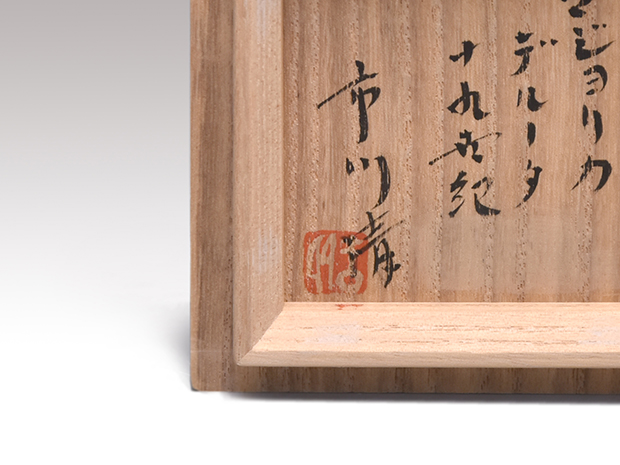 マジョリカ
デルータ
十九世紀
市川清